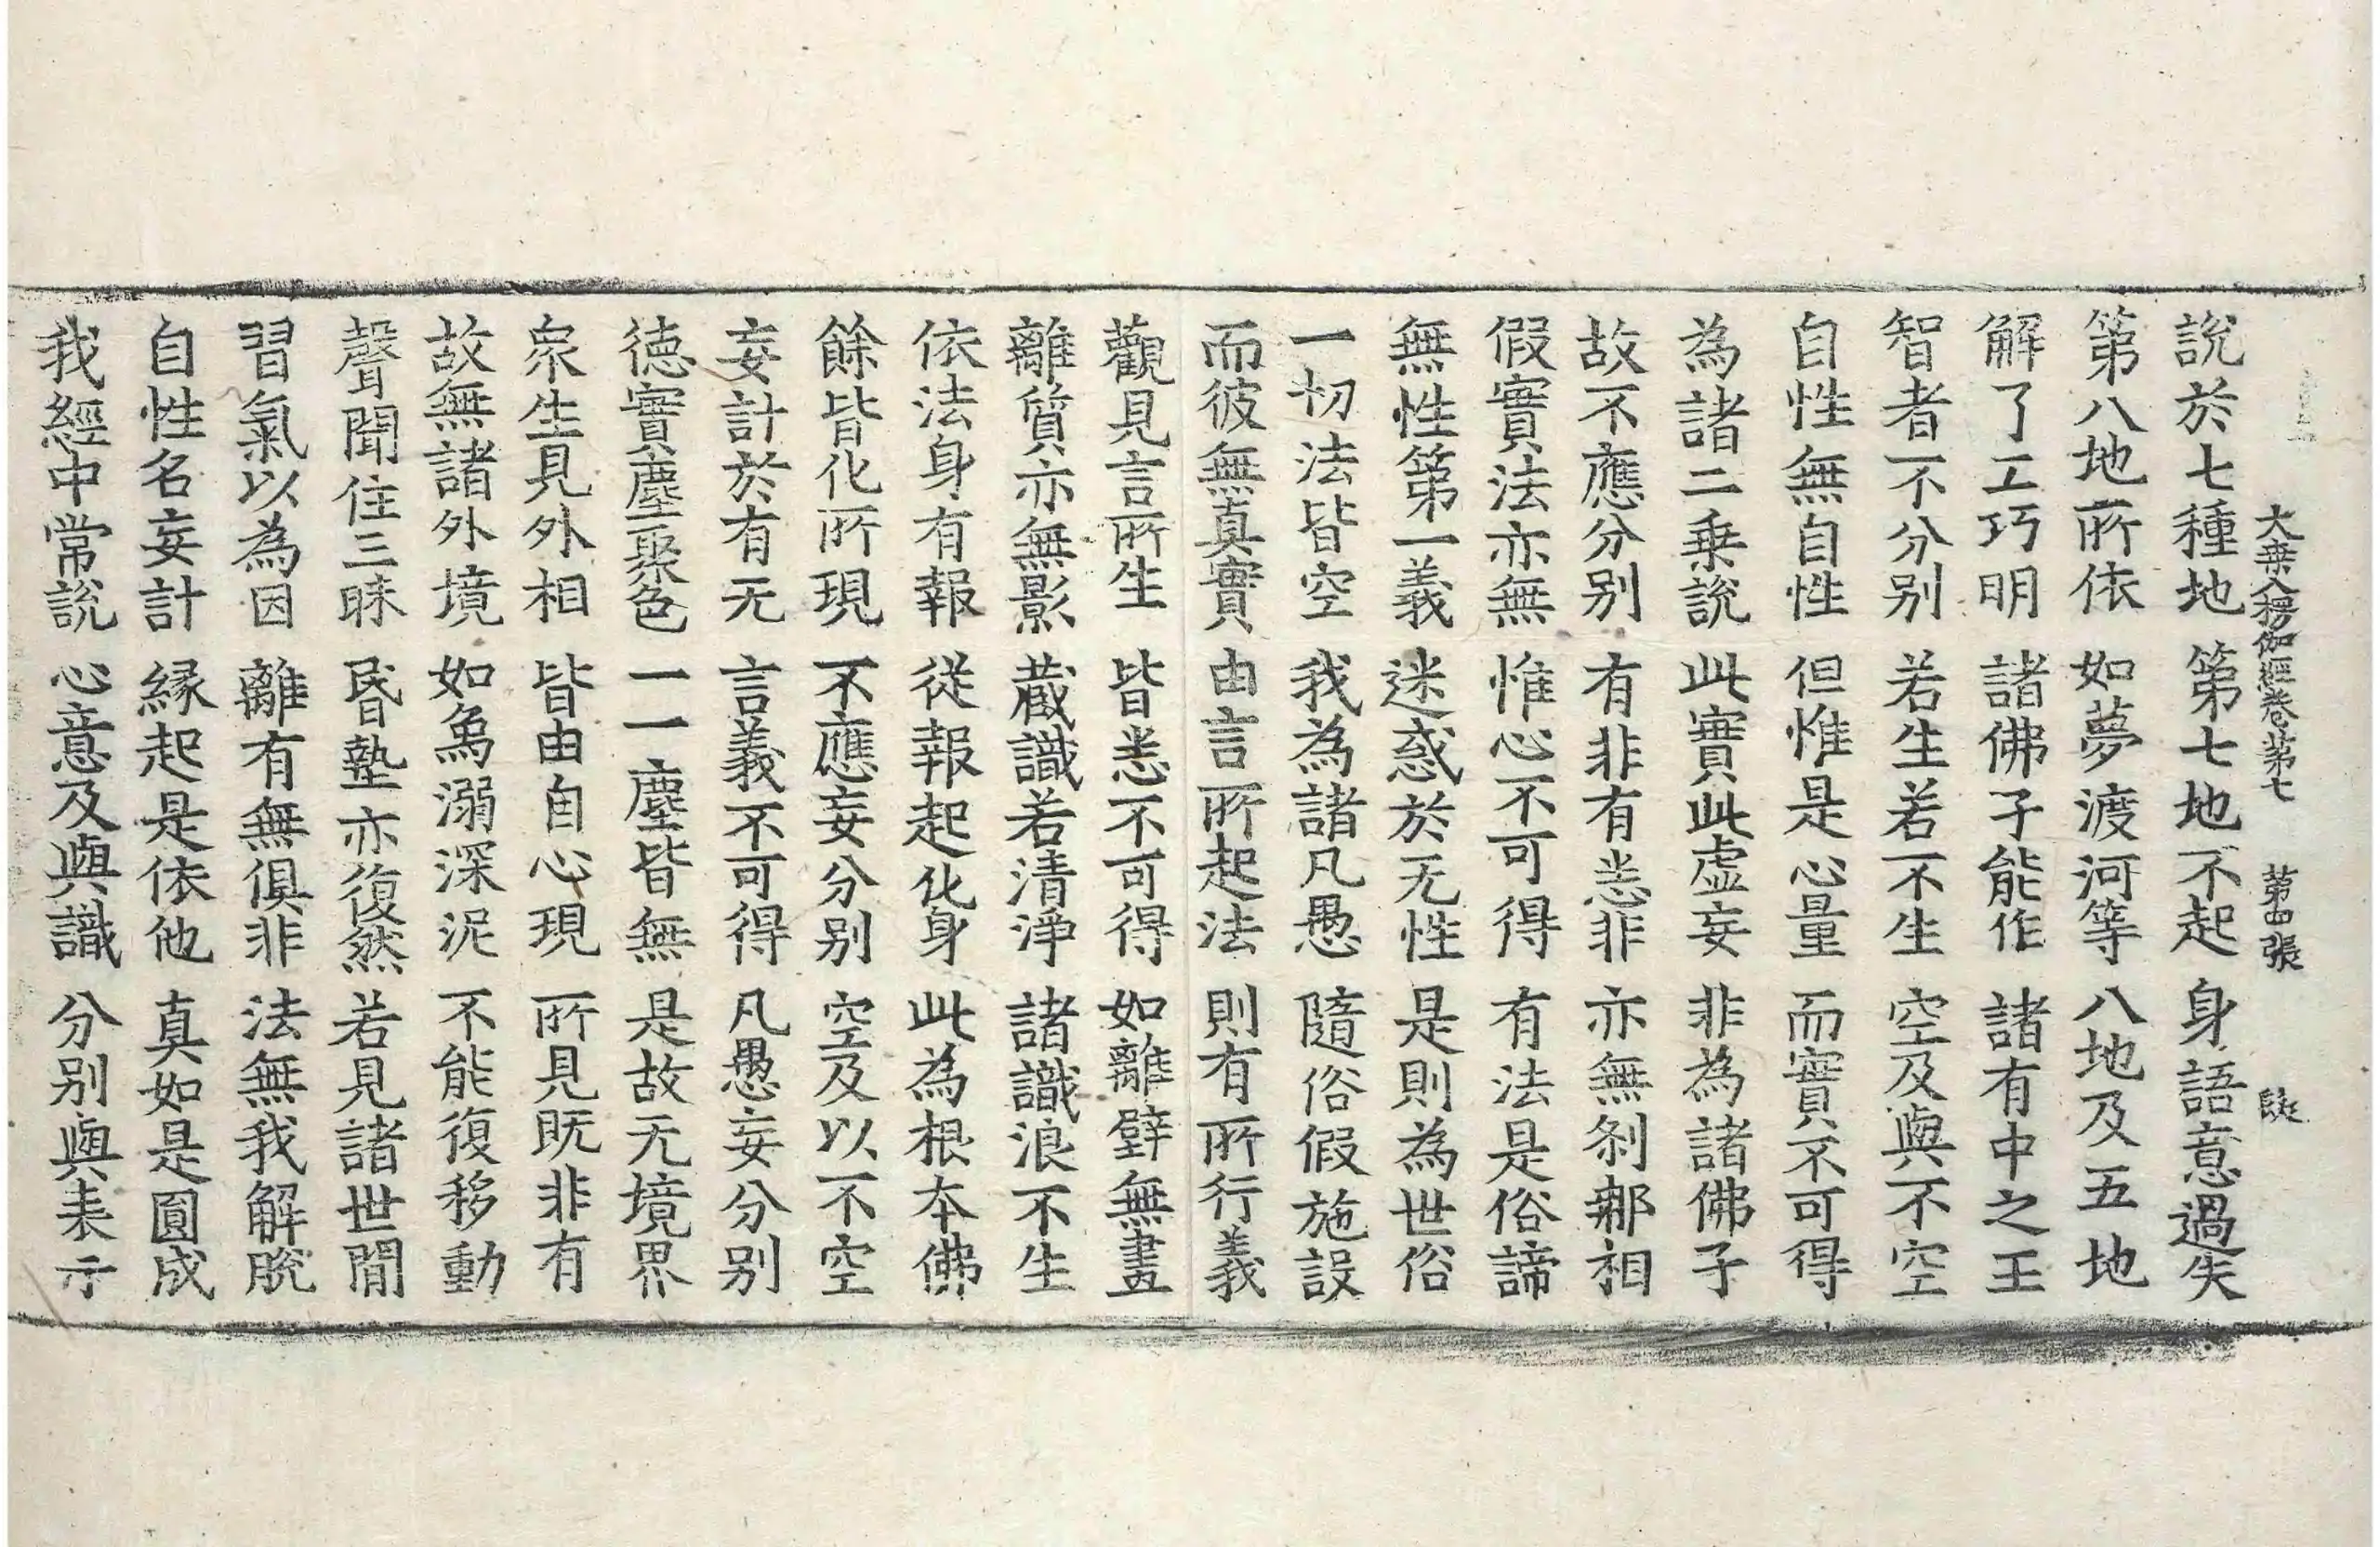 大乗入楞伽経卷第七 第四張
說於七種地 第七地不起 身語意過失
第八地所依 如夢渡河等 八地及五地
解了工巧明 諸佛子能作 諸有中之王
智者不分别 若生若不生 空及與不空
自性無自性 但惟是心量 而實不可得
為諸二乗說 此實此虚妄 非為諸佛子
故不應分别 有非有悉非 亦無刹郍相
假實法亦無 惟心不可得 有法是俗諦
無性第一義 迷惑於无性 是則為世俗
一切法皆空 我為諸凡愚 隨俗假施設
而彼無真實 由言所起法 則有所行義
觀見言所生 皆悉不可得 如離壁無畫
離質亦無影 蔵識若清淨 諸識浪不生
依法身有報 從報起化身 此為根本佛
餘皆化所現 不應妄分别 空及以不空
妄計於有无 言義不可得 凡愚妄分别
徳實塵聚色 一一塵皆無 是故无境界
衆生見外相 皆由自心現 所見既非有
故無諸外境 如象溺深泥 不能復移動
聲聞住三昧 昬墊亦復然 若見諸世間
習氣以為因 離有無俱非 法無我解脫
自性名妄計 縁起是依他 真如是圓成
我經中常說 心意及與識 分别與表示